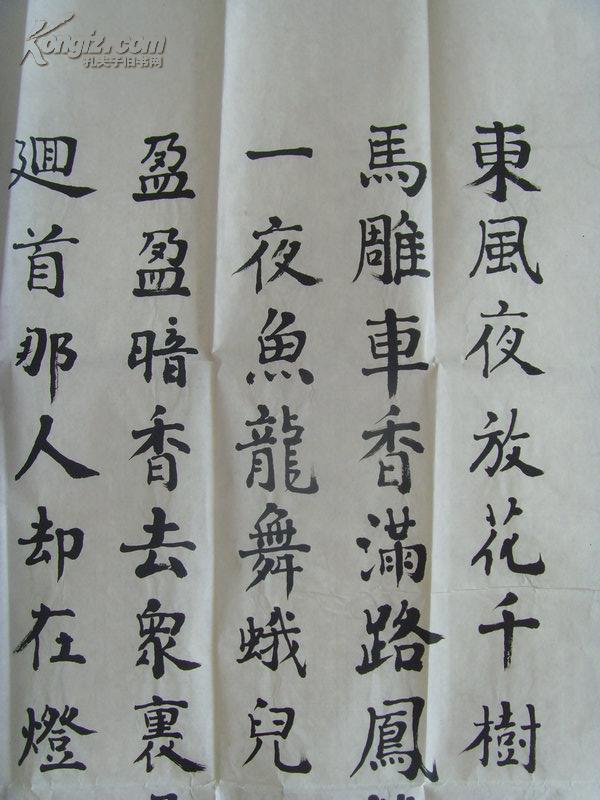 東風夜放花千樹
馬雕車香滿路鳳
一夜魚龍舞蛾兒
盈盈暗香去眾裏
廻首那人却在燈
Kongfz.com
孔夫子旧书网